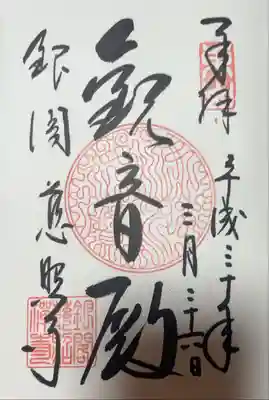 奉拝
平成三十年
三月
日
観音殿
銀閣 慈照寺